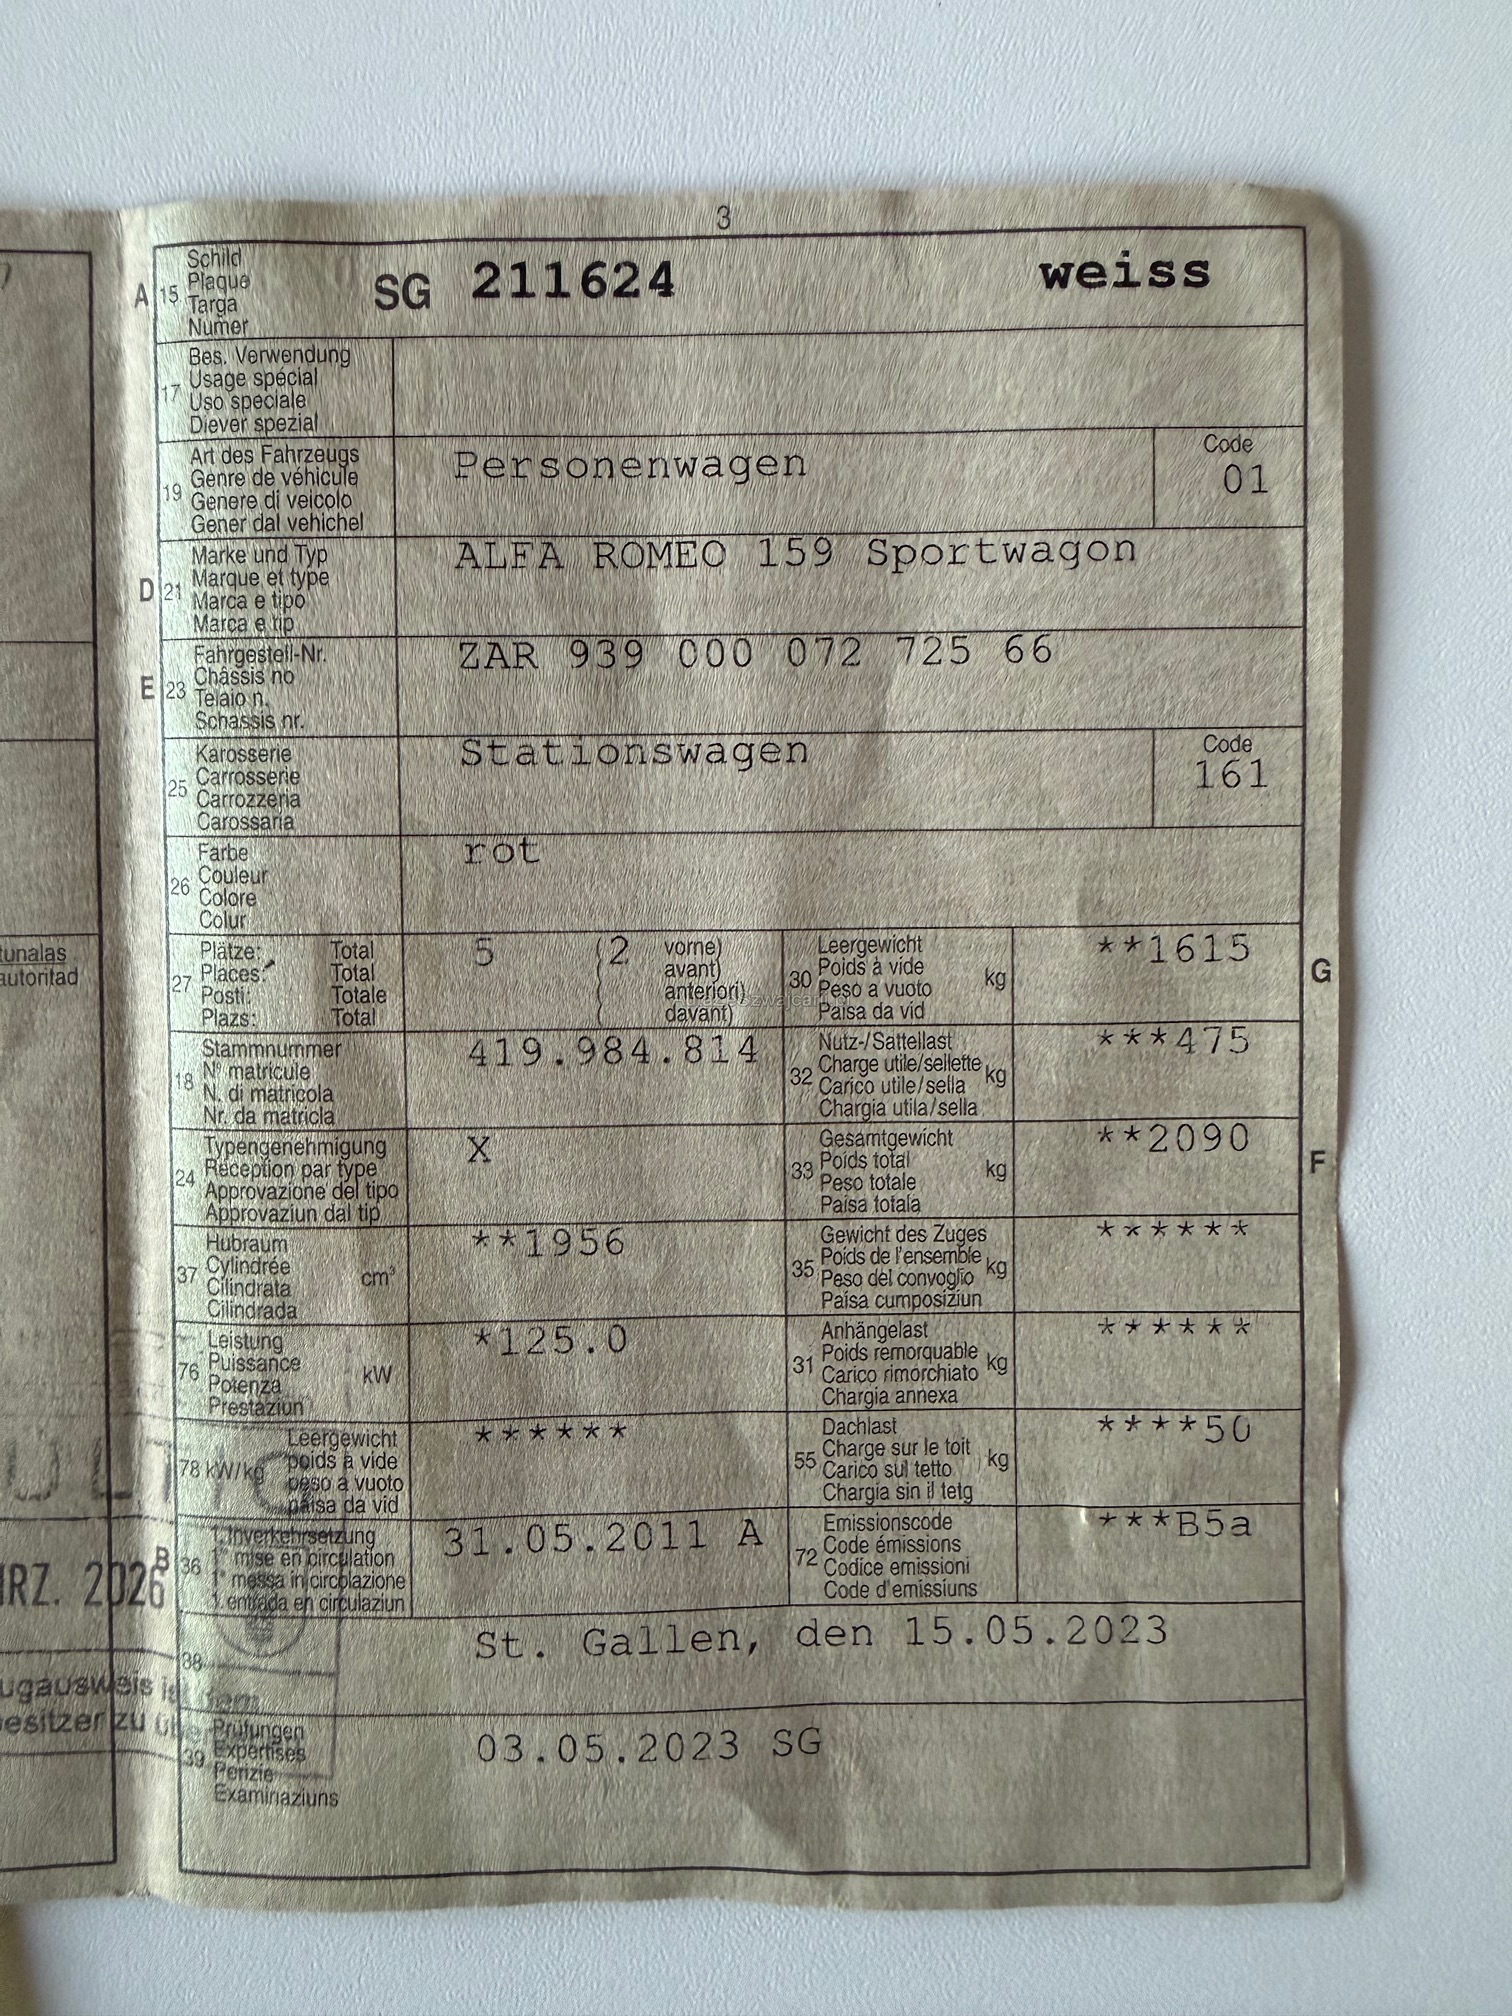 3
A 15 Schild
Plaque
Targa
Numer
SG 211624 weiss
17 Bes. Verwendung
Usage spécial
Uso speciale
Diever spezial
19 Art des Fahrzeugs
Genre de véhicule
Genere di veicolo
Gener dal vehichel
Personenwagen
Code
01
D 21 Marke und Typ
Marque et type
Marca e tipo
Marca e tip
ALFA ROMEO 159 Sportwagon
E 23 Fahrgestell-Nr.
Châssis no
Telaio n.
Schassis nr.
ZAR 939 000 072 725 66
25 Karosserie
Carrosserie
Carrozzeria
Carossaria
Stationswagen
Code
161
26 Farbe
Couleur
Colore
Colur
rot
27 Plätze: Total
Places: Total
Posti: Totale
Plazs: Total
5 (2 vorne)
( avant)
( anteriori)
( davant)
30 Leergewicht
Poids à vide
Peso a vuoto
Paisa da vid
kg
**1615
G
18 Stammnummer
N° matricule
N. di matricola
Nr. da matricla
419.984.814
32 Nutz-/Sattellast
Charge utile/sellette
Carico utile/sella
Chargia utila/sella
kg
***475
24 Typengenehmigung
Réception par type
Approvazione del tipo
Approvaziun dal tip
X
33 Gesamtgewicht
Poids total
Peso totale
Paisa totala
kg
**2090
F
37 Hubraum
Cylindrée
Cilindrata
Cilindrada
cm³
**1956
35 Gewicht des Zuges
Poids de l'ensemble
Peso del convoglio
Paisa cumposiziun
kg
******
76 Leistung
Puissance
Potenza
Prestaziun
kW
*125.0
31 Anhängelast
Poids remorquable
Carico rimorchiato
Chargia annexa
kg
******
78 kW/kg Leergewicht
poids à vide
peso a vuoto
paisa da vid
******
55 Dachlast
Charge sur le toit
Carico sul tetto
Chargia sin il tetg
kg
****50
B 36 1. Inverkehrsetzung
1re mise en circulation
1a messa in circolazione
1. entrada en circulaziun
31.05.2011 A
72 Emissionscode
Code émissions
Codice emissioni
Code d'emissiuns
***B5a
38
St. Gallen, den 15.05.2023
39 Prüfungen
Expertises
Perizie
Examinaziuns
03.05.2023 SG
tunalas
autoritad
RZ. 2026
ugausweis ist dem
esitzer zu